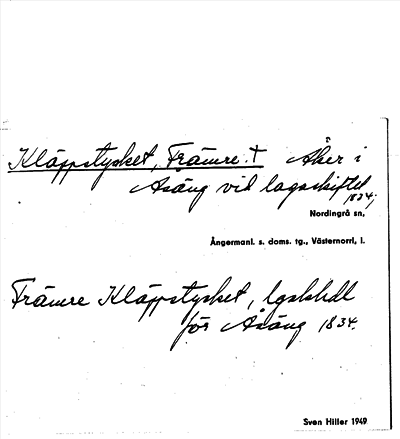 Kläppstycket, Främre. † Åker i
Åsäng vid lagaskiftet
1834,
Nordingrå sn,
Ångermanl. s. doms. tg., Västernorrl. l.
Främre Kläppstycket, lgskhdl
för Åsäng 1834.
Sven Hiller 1949